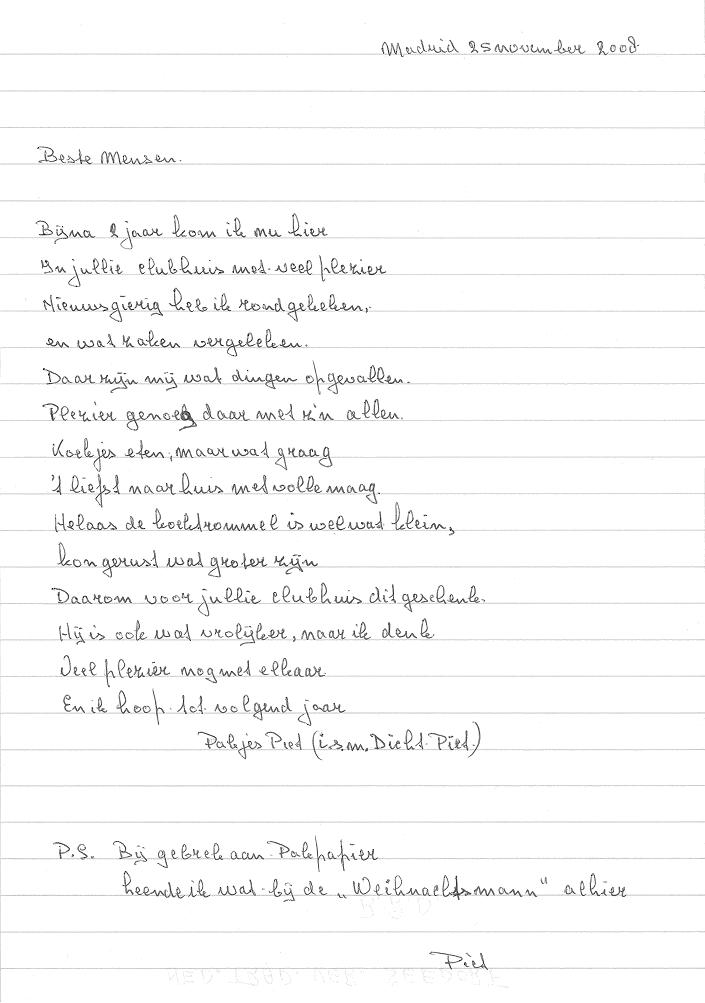 Madrid 25 november 2008
Beste Mensen.
Bijna 2 jaar kom ik nu hier
In jullie clubhuis met veel plezier
Nieuwsgierig heb ik rondgekeken,
en wat zaken vergeleken.
Daar zijn mij wat dingen opgevallen.
Plezier genoeg daar met z'n allen.
Koekjes eten, maar wat graag
't liefst naar huis met volle maag.
Helaas de koektrommel is wel wat klein,
kon gerust wat groter zijn
Daarom voor jullie clubhuis dit geschenk.
Hij is ook wat vrolijker, naar ik denk
Veel plezier nog met elkaar
En ik hoop tot volgend jaar
Pakjes Piet (i.s.m. Dicht Piet.)
P.S. Bij gebrek aan Pakpapier
leende ik wat bij de „Weihnachtsmann" alhier
Piet